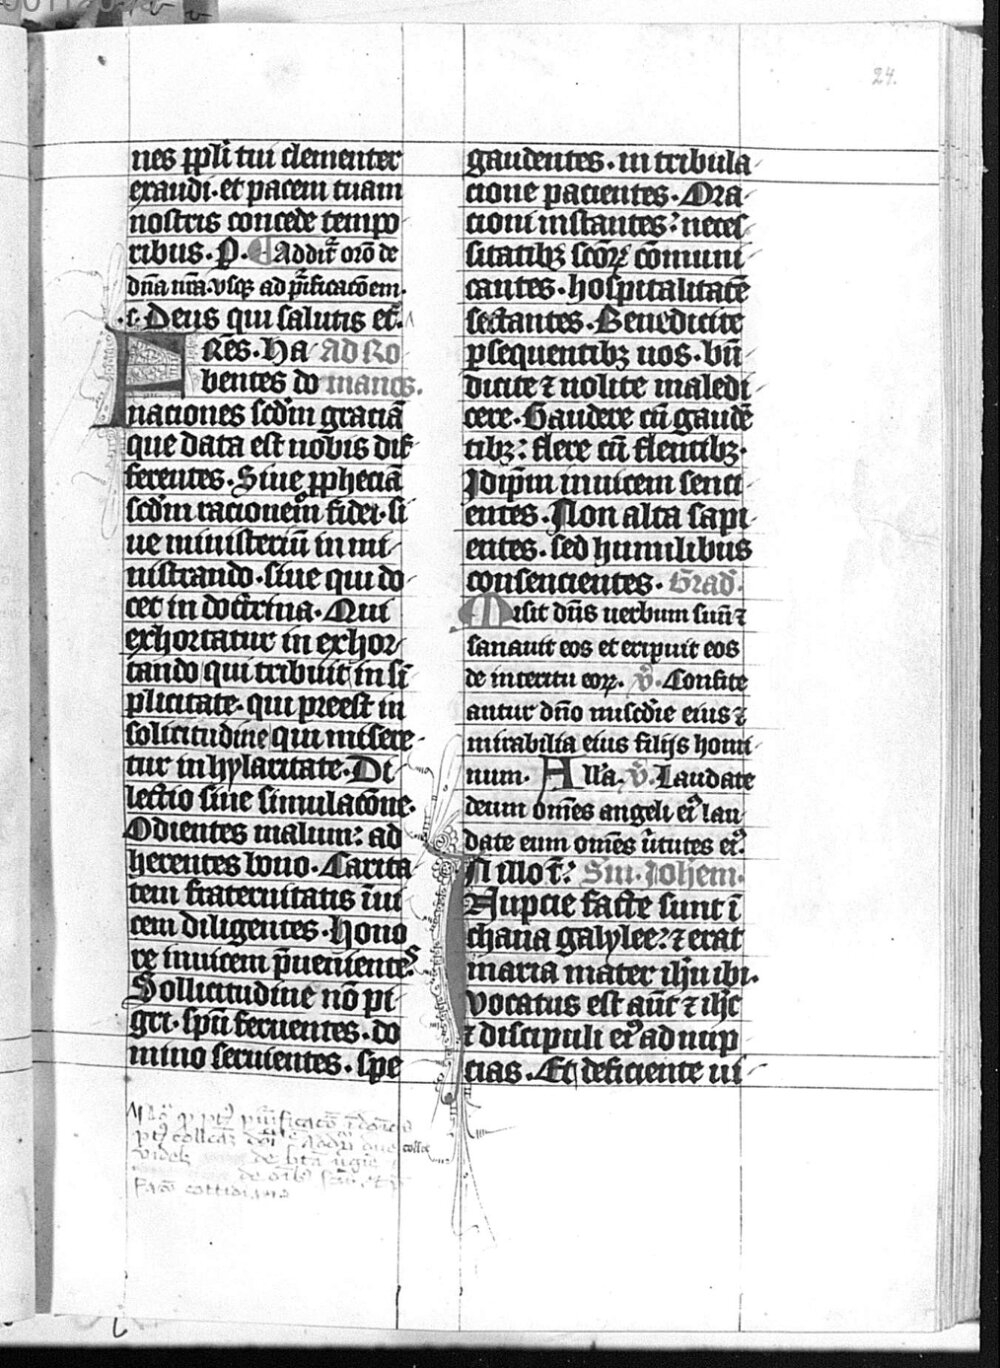 24.
nes ppl̄i tui clementer
exaudi· et pacem tuam
nostris concede tempo
ribus· P. Addit̄ oro̅ de
dn̄a nr̄a· vsq̨ ad pͥficaco̅em·
·c· Deus qui salutis et̄.
RES· Ha ad Ro
bentes do manos.
naciones scd̄m graciā
que data est nobis dif
ferentes· Siue ꝓpheciā
scd̄m racionem fidei· si
ue ministeriū in mi
nistrando· siue qui do
cet in doctrina· Qui
exhortatur in exhor
tando qui tribuit in sī
plicitate· qui preest in
solicitudine qui misere
tur in hylaritate· Di
lectio sine simulaco̅ne·
Odientes malum: ad
herentes bono· Carita
tem fraternitatis īui
cem diligentes· Hono
re inuicem p̄uenientes
Sollicitudine nō pi
gri· spū feruentes· do
mino seruientes· spe
gaudentes· in tribula
cione pacientes· Ora
cioni instantes: neces
sitatibꝫ sc̄oꝝ cōmuni
cantes· hospitalitatē
sectantes· Benedicite
ꝑsequentibꝫ uos· bn̄
dicite ⁊ nolite maledi
cere· Gaudere cū gaudē
tibꝫ: flere cū flentibꝫ·
Idip̄m inuicem senci
entes· Non alta sapi
entes· sed humilibus
consencientes· Grad̄·
Misit dn̄s uerbum suū ⁊
sanauit eos et eripuit eos
de interitu eoꝝ· v̄· Confite
antur dn̄o mise̅die eius ⁊
mirabilia eius filijs homi
num· All'a· v̄· Laudate
deum om̄es angeli eiꝰ lau
date eum om̄es ūtutes eiꝰ.
In illo t̄: Sm̄· Joh̄em·
Nupcie facte sunt ī
chana galylee: ⁊ erat
maria mater ih̄u ibi·
vocatus est aūt ⁊ ih̄c
⁊ discipuli eiꝰ ad nup
cias· Et deficiente ui